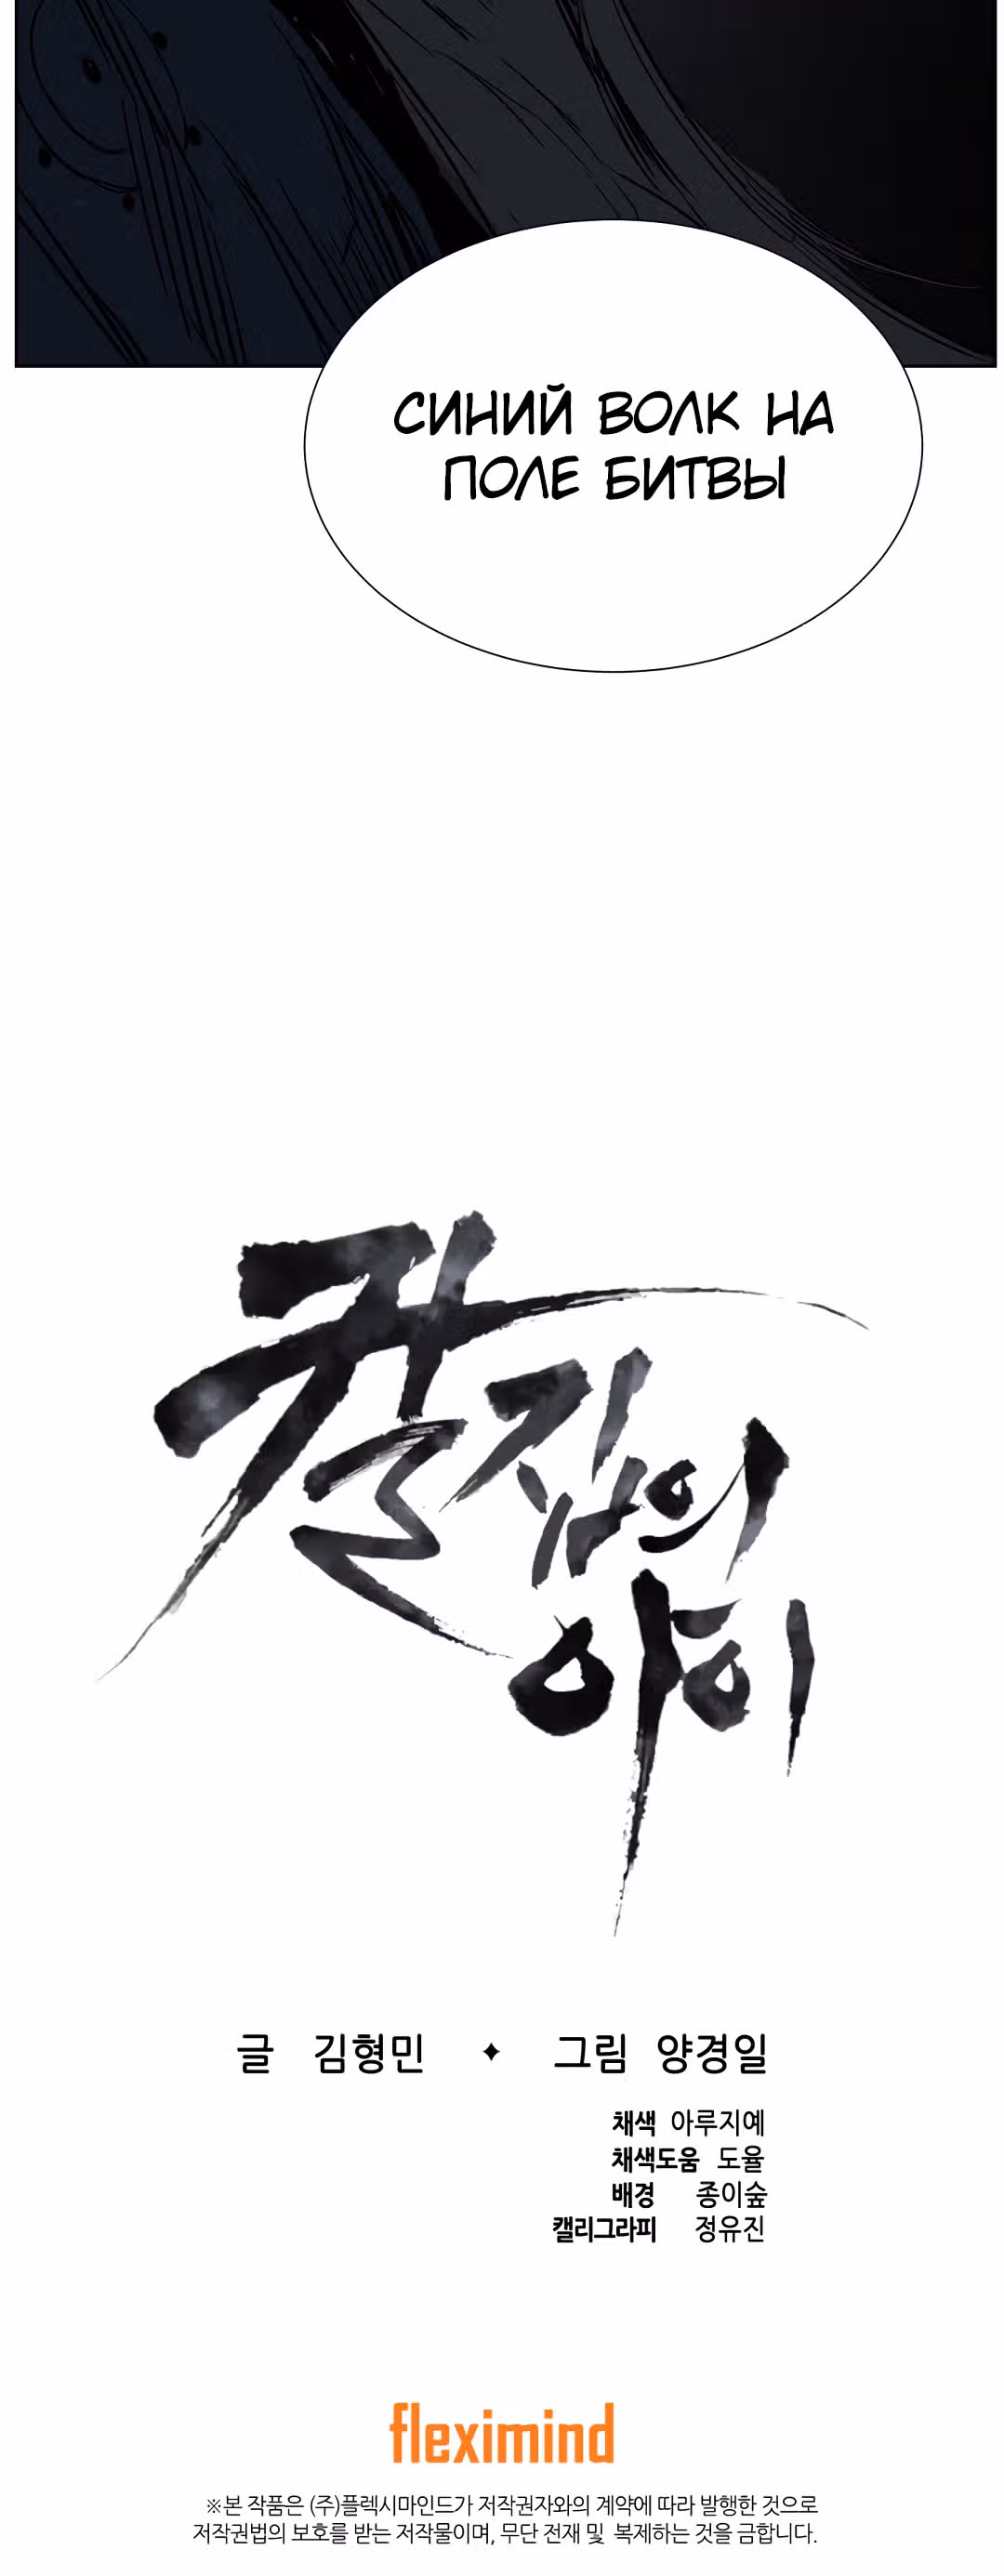 СИНИЙ ВОЛК НА
ПОЛЕ БИТВЫ
칼집의
아이
글 김형민 ✦ 그림 양경일
채색 아루지예
채색도움 도율
배경 종이숲
캘리그라피 정유진
fleximind
※본 작품은 (주)플렉시마인드가 저작권자와의 계약에 따라 발행한 것으로
저작권법의 보호를 받는 저작물이며, 무단 전재 및 복제하는 것을 금합니다.